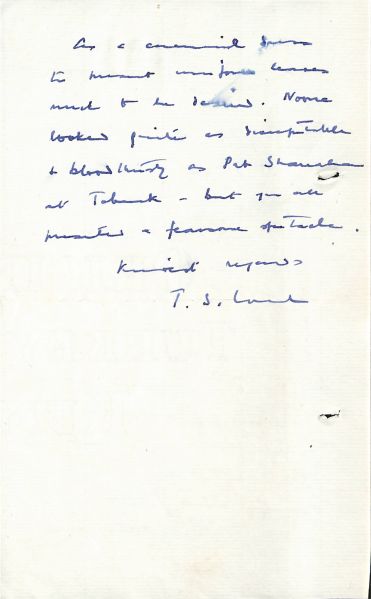 As a ceremonial dress
the present uniform leaves
much to be desired. Noone
looked quite as disreputable
& bloodthirsty as Pat Shanahan
at Tobruk - but you all
presented a fearsome spectacle.
Kindest regards
T. S.